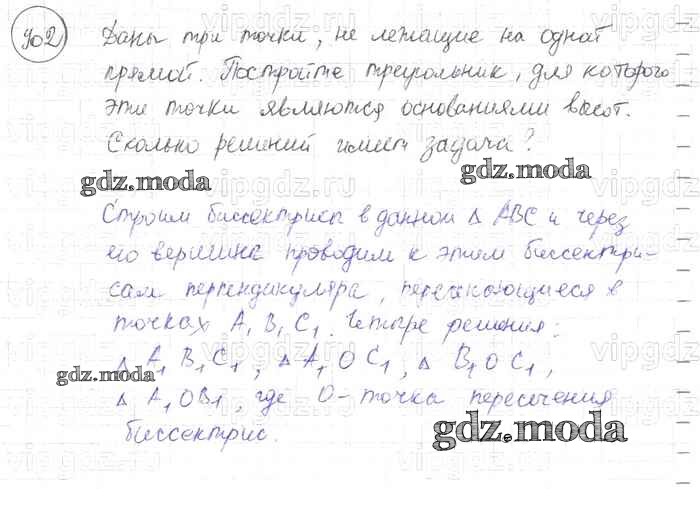 902 Даны три точки, не лежащие на одной
прямой. Постройте треугольник, для которого
эти точки являются основаниями высот.
Сколько решений имеет задача?
gdz.moda gdz.moda
Строим биссектрисы в данном △ ABC и через
его вершины проводим к этим биссектри-
сам перпендикуляры, пересекающиеся в
точках A₁ B₁ C₁. Четыре решения:
△ A₁ B₁ C₁, △ A₁ O C₁, △ B₁ O C₁,
gdz.moda
△ A₁ O B₁, где O - точка пересечения
биссектрис.
gdz.moda